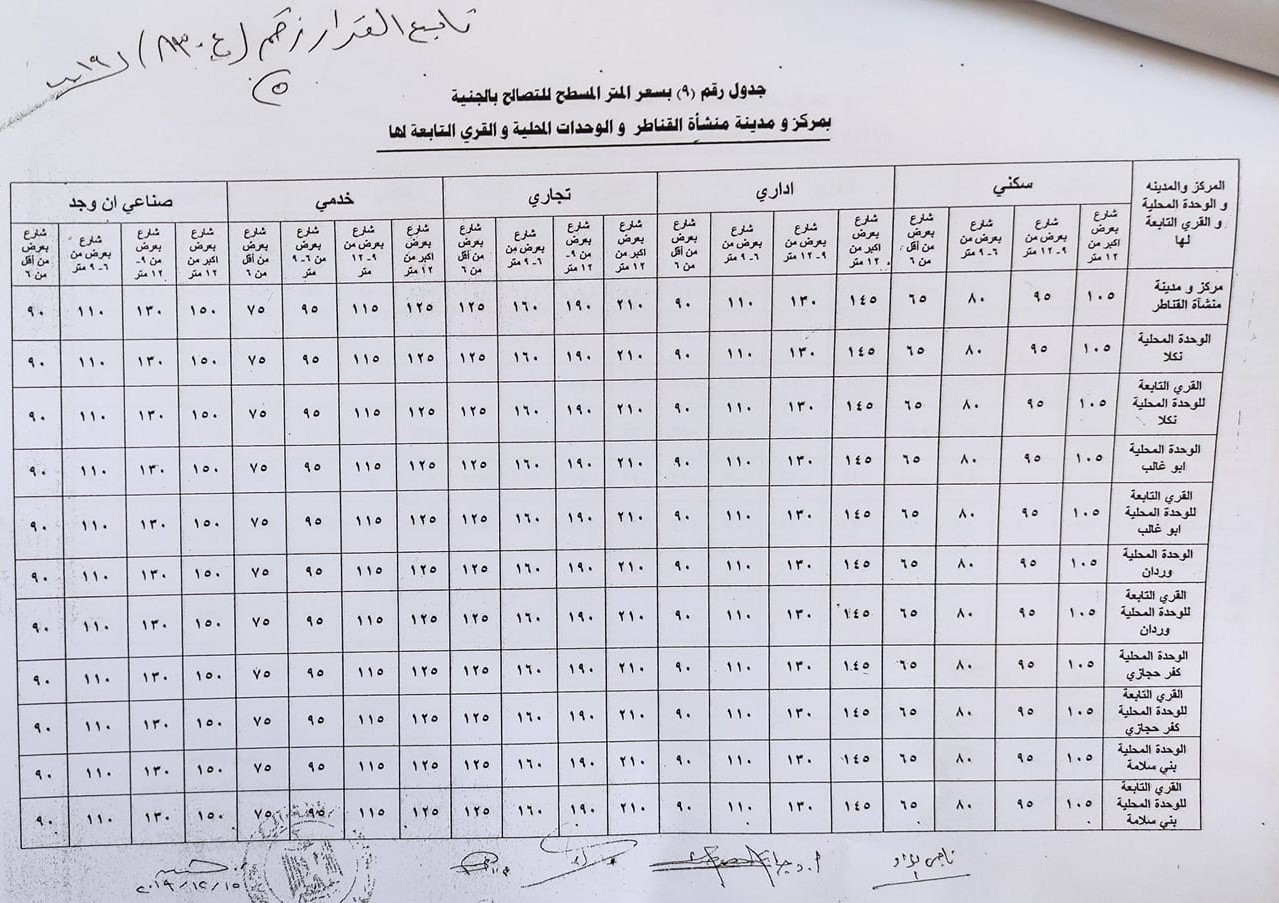 تابع القرار رقم (٨٣٠٤) ٢٠١٩
(٥)
جدول رقم (٩) بسعر المتر المسطح للتصالح بالجنية
بمركز و مدينة منشأة القناطر و الوحدات المحلية و القري التابعة لها
المركز والمدينه و الوحدة المحلية و القري التابعة لها | سكني | اداري | تجاري | خدمي | صناعي ان وجد
شارع بعرض اكبر من ١٢ متر | شارع بعرض من ٩-١٢ متر | شارع بعرض من ٦-٩ متر | شارع بعرض من أقل من ٦ | شارع بعرض اكبر من ١٢ متر | شارع بعرض من ٩-١٢ متر | شارع بعرض من ٦-٩ متر | شارع بعرض من أقل من ٦ | شارع بعرض اكبر من ١٢ متر | شارع بعرض من ٩-١٢ متر | شارع بعرض من ٦-٩ متر | شارع بعرض من أقل من ٦ | شارع بعرض اكبر من ١٢ متر | شارع بعرض من ٩-١٢ متر | شارع بعرض من ٦-٩ متر | شارع بعرض من أقل من ٦ | شارع بعرض اكبر من ١٢ متر | شارع بعرض من ٩-١٢ متر | شارع بعرض من ٦-٩ متر | شارع بعرض من أقل من ٦
مركز و مدينة منشأة القناطر | ١٠٥ | ٩٥ | ٨٠ | ٦٥ | ١٤٥ | ١٣٠ | ١١٠ | ٩٠ | ٢١٠ | ١٩٠ | ١٦٠ | ١٢٥ | ١٢٥ | ١١٥ | ٩٥ | ٧٥ | ١٥٠ | ١٣٠ | ١١٠ | ٩٠
الوحدة المحلية نكلا | ١٠٥ | ٩٥ | ٨٠ | ٦٥ | ١٤٥ | ١٣٠ | ١١٠ | ٩٠ | ٢١٠ | ١٩٠ | ١٦٠ | ١٢٥ | ١٢٥ | ١١٥ | ٩٥ | ٧٥ | ١٥٠ | ١٣٠ | ١١٠ | ٩٠
القري التابعة للوحدة المحلية نكلا | ١٠٥ | ٩٥ | ٨٠ | ٦٥ | ١٤٥ | ١٣٠ | ١١٠ | ٩٠ | ٢١٠ | ١٩٠ | ١٦٠ | ١٢٥ | ١٢٥ | ١١٥ | ٩٥ | ٧٥ | ١٥٠ | ١٣٠ | ١١٠ | ٩٠
الوحدة المحلية ابو غالب | ١٠٥ | ٩٥ | ٨٠ | ٦٥ | ١٤٥ | ١٣٠ | ١١٠ | ٩٠ | ٢١٠ | ١٩٠ | ١٦٠ | ١٢٥ | ١٢٥ | ١١٥ | ٩٥ | ٧٥ | ١٥٠ | ١٣٠ | ١١٠ | ٩٠
القري التابعة للوحدة المحلية ابو غالب | ١٠٥ | ٩٥ | ٨٠ | ٦٥ | ١٤٥ | ١٣٠ | ١١٠ | ٩٠ | ٢١٠ | ١٩٠ | ١٦٠ | ١٢٥ | ١٢٥ | ١١٥ | ٩٥ | ٧٥ | ١٥٠ | ١٣٠ | ١١٠ | ٩٠
الوحدة المحلية وردان | ١٠٥ | ٩٥ | ٨٠ | ٦٥ | ١٤٥ | ١٣٠ | ١١٠ | ٩٠ | ٢١٠ | ١٩٠ | ١٦٠ | ١٢٥ | ١٢٥ | ١١٥ | ٩٥ | ٧٥ | ١٥٠ | ١٣٠ | ١١٠ | ٩٠
القري التابعة للوحدة المحلية وردان | ١٠٥ | ٩٥ | ٨٠ | ٦٥ | ١٤٥ | ١٣٠ | ١١٠ | ٩٠ | ٢١٠ | ١٩٠ | ١٦٠ | ١٢٥ | ١٢٥ | ١١٥ | ٩٥ | ٧٥ | ١٥٠ | ١٣٠ | ١١٠ | ٩٠
الوحدة المحلية كفر حجازي | ١٠٥ | ٩٥ | ٨٠ | ٦٥ | ١٤٥ | ١٣٠ | ١١٠ | ٩٠ | ٢١٠ | ١٩٠ | ١٦٠ | ١٢٥ | ١٢٥ | ١١٥ | ٩٥ | ٧٥ | ١٥٠ | ١٣٠ | ١١٠ | ٩٠
القري التابعة للوحدة المحلية كفر حجازي | ١٠٥ | ٩٥ | ٨٠ | ٦٥ | ١٤٥ | ١٣٠ | ١١٠ | ٩٠ | ٢١٠ | ١٩٠ | ١٦٠ | ١٢٥ | ١٢٥ | ١١٥ | ٩٥ | ٧٥ | ١٥٠ | ١٣٠ | ١١٠ | ٩٠
الوحدة المحلية بني سلامة | ١٠٥ | ٩٥ | ٨٠ | ٦٥ | ١٤٥ | ١٣٠ | ١١٠ | ٩٠ | ٢١٠ | ١٩٠ | ١٦٠ | ١٢٥ | ١٢٥ | ١١٥ | ٩٥ | ٧٥ | ١٥٠ | ١٣٠ | ١١٠ | ٩٠
القري التابعة للوحدة المحلية بني سلامة | ١٠٥ | ٩٥ | ٨٠ | ٦٥ | ١٤٥ | ١٣٠ | ١١٠ | ٩٠ | ٢١٠ | ١٩٠ | ١٦٠ | ١٢٥ | ١٢٥ | ١١٥ | ٩٥ | ٧٥ | ١٥٠ | ١٣٠ | ١١٠ | ٩٠
٢٠١٩/١٢/١٥